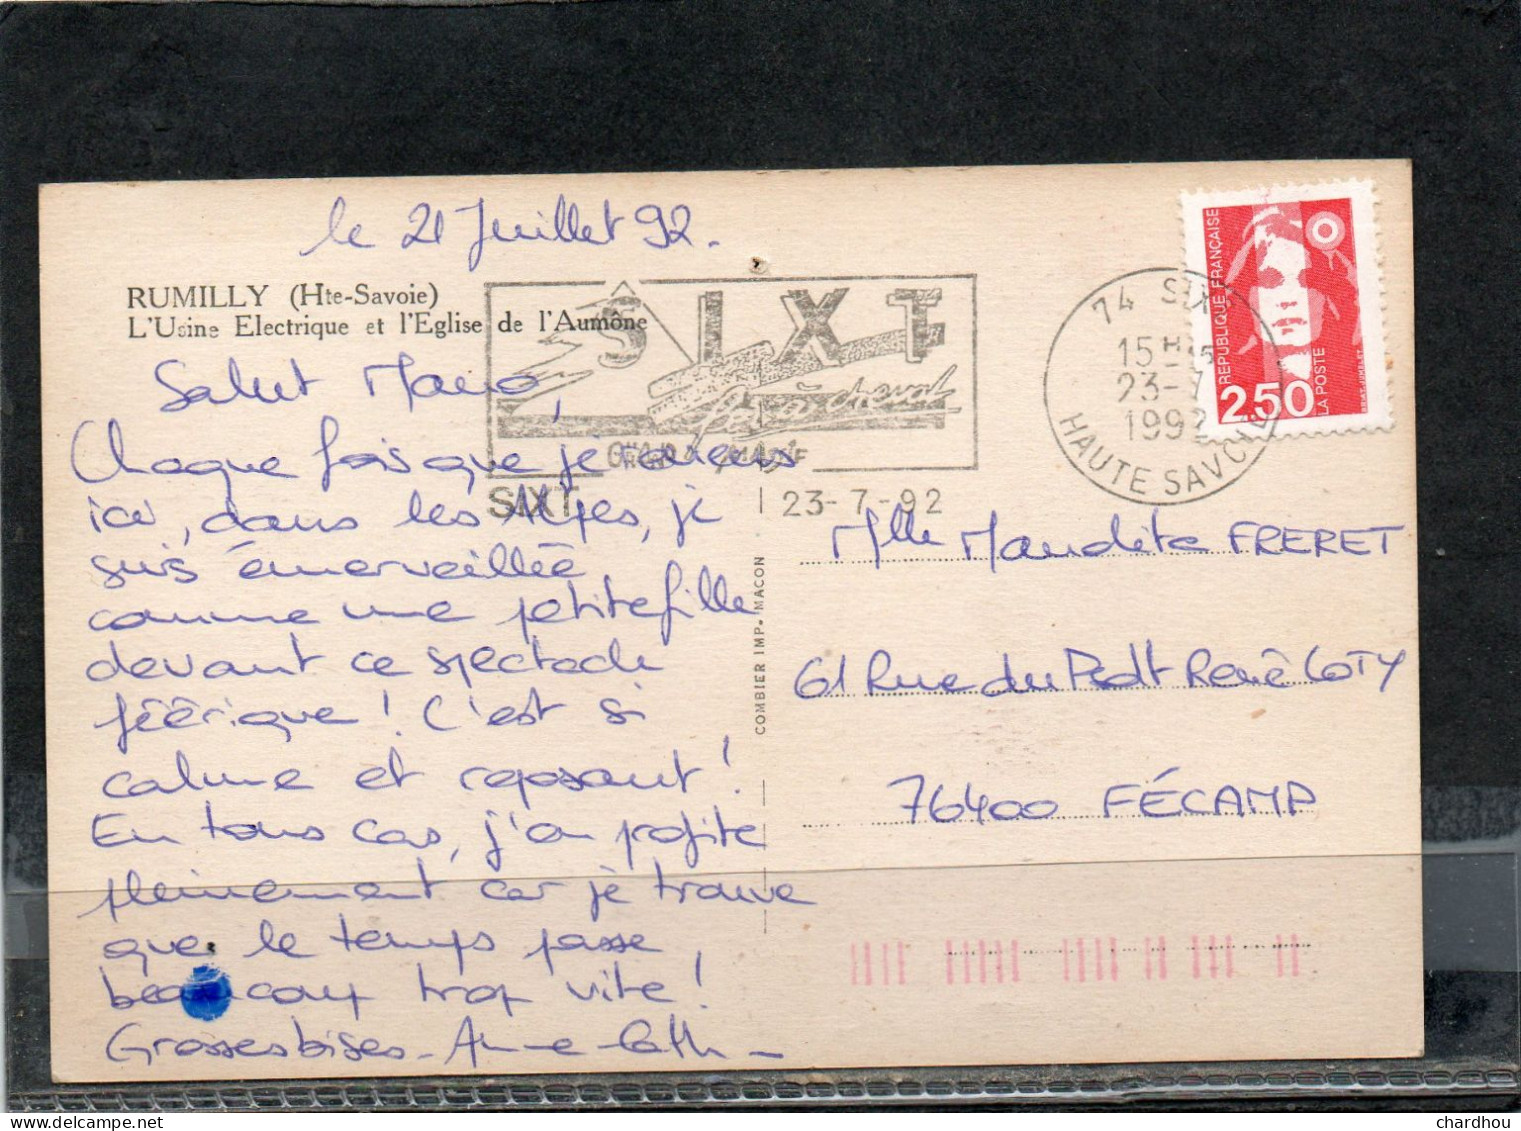 le 21 Juillet 92.
RUMILLY (Hte-Savoie)
L'Usine Electrique et l'Eglise de l'Aumône
Salut Mano,
Chaque fois que je viens
ici, dans les Alpes, je
suis émerveillée
comme une petite fille
devant ce spectacle
féérique ! C'est si
calme et reposant !
En tous cas, j'en profite
pleinement car je trouve
que le temps passe
beaucoup trop vite !
Grosses bises - Anne Cath -
SIXT
à cheval
SIXT
23-7-92
74 SIXT
15H 45
23-7
1992
HAUTE SAVOIE
REPUBLIQUE FRANÇAISE
2,50
LA POSTE
COMBIER IMP. MACON
Mlle Maudite FRERET
61 Rue du Pdt René COTY
76400 FÉCAMP
chardhou